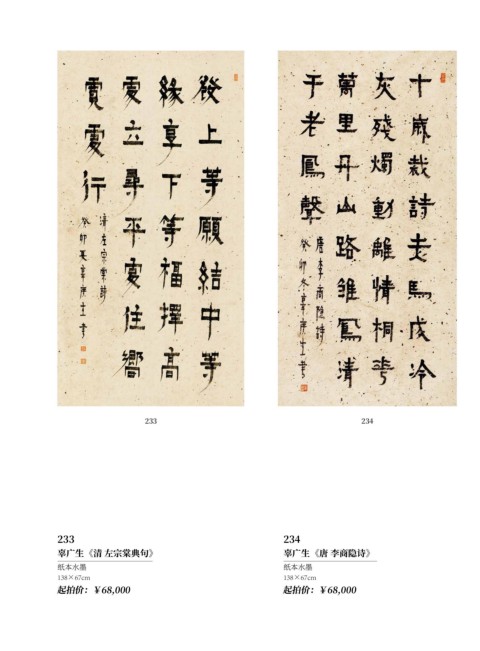 發上等願結中等
緣享下等福擇高
處立尋平處住嚮
寬處行
清左宗棠詩
癸卯夏辜廣生書
十歲裁詩走馬成冷
灰殘燭動離情桐花
萬里丹山路雛鳳清
于老鳳聲
唐李商隱詩
癸卯冬辜廣生書
233
234
233
辜广生《清 左宗棠典句》
纸本水墨
138×67cm
起拍价：￥68,000
234
辜广生《唐 李商隐诗》
纸本水墨
138×67cm
起拍价：￥68,000